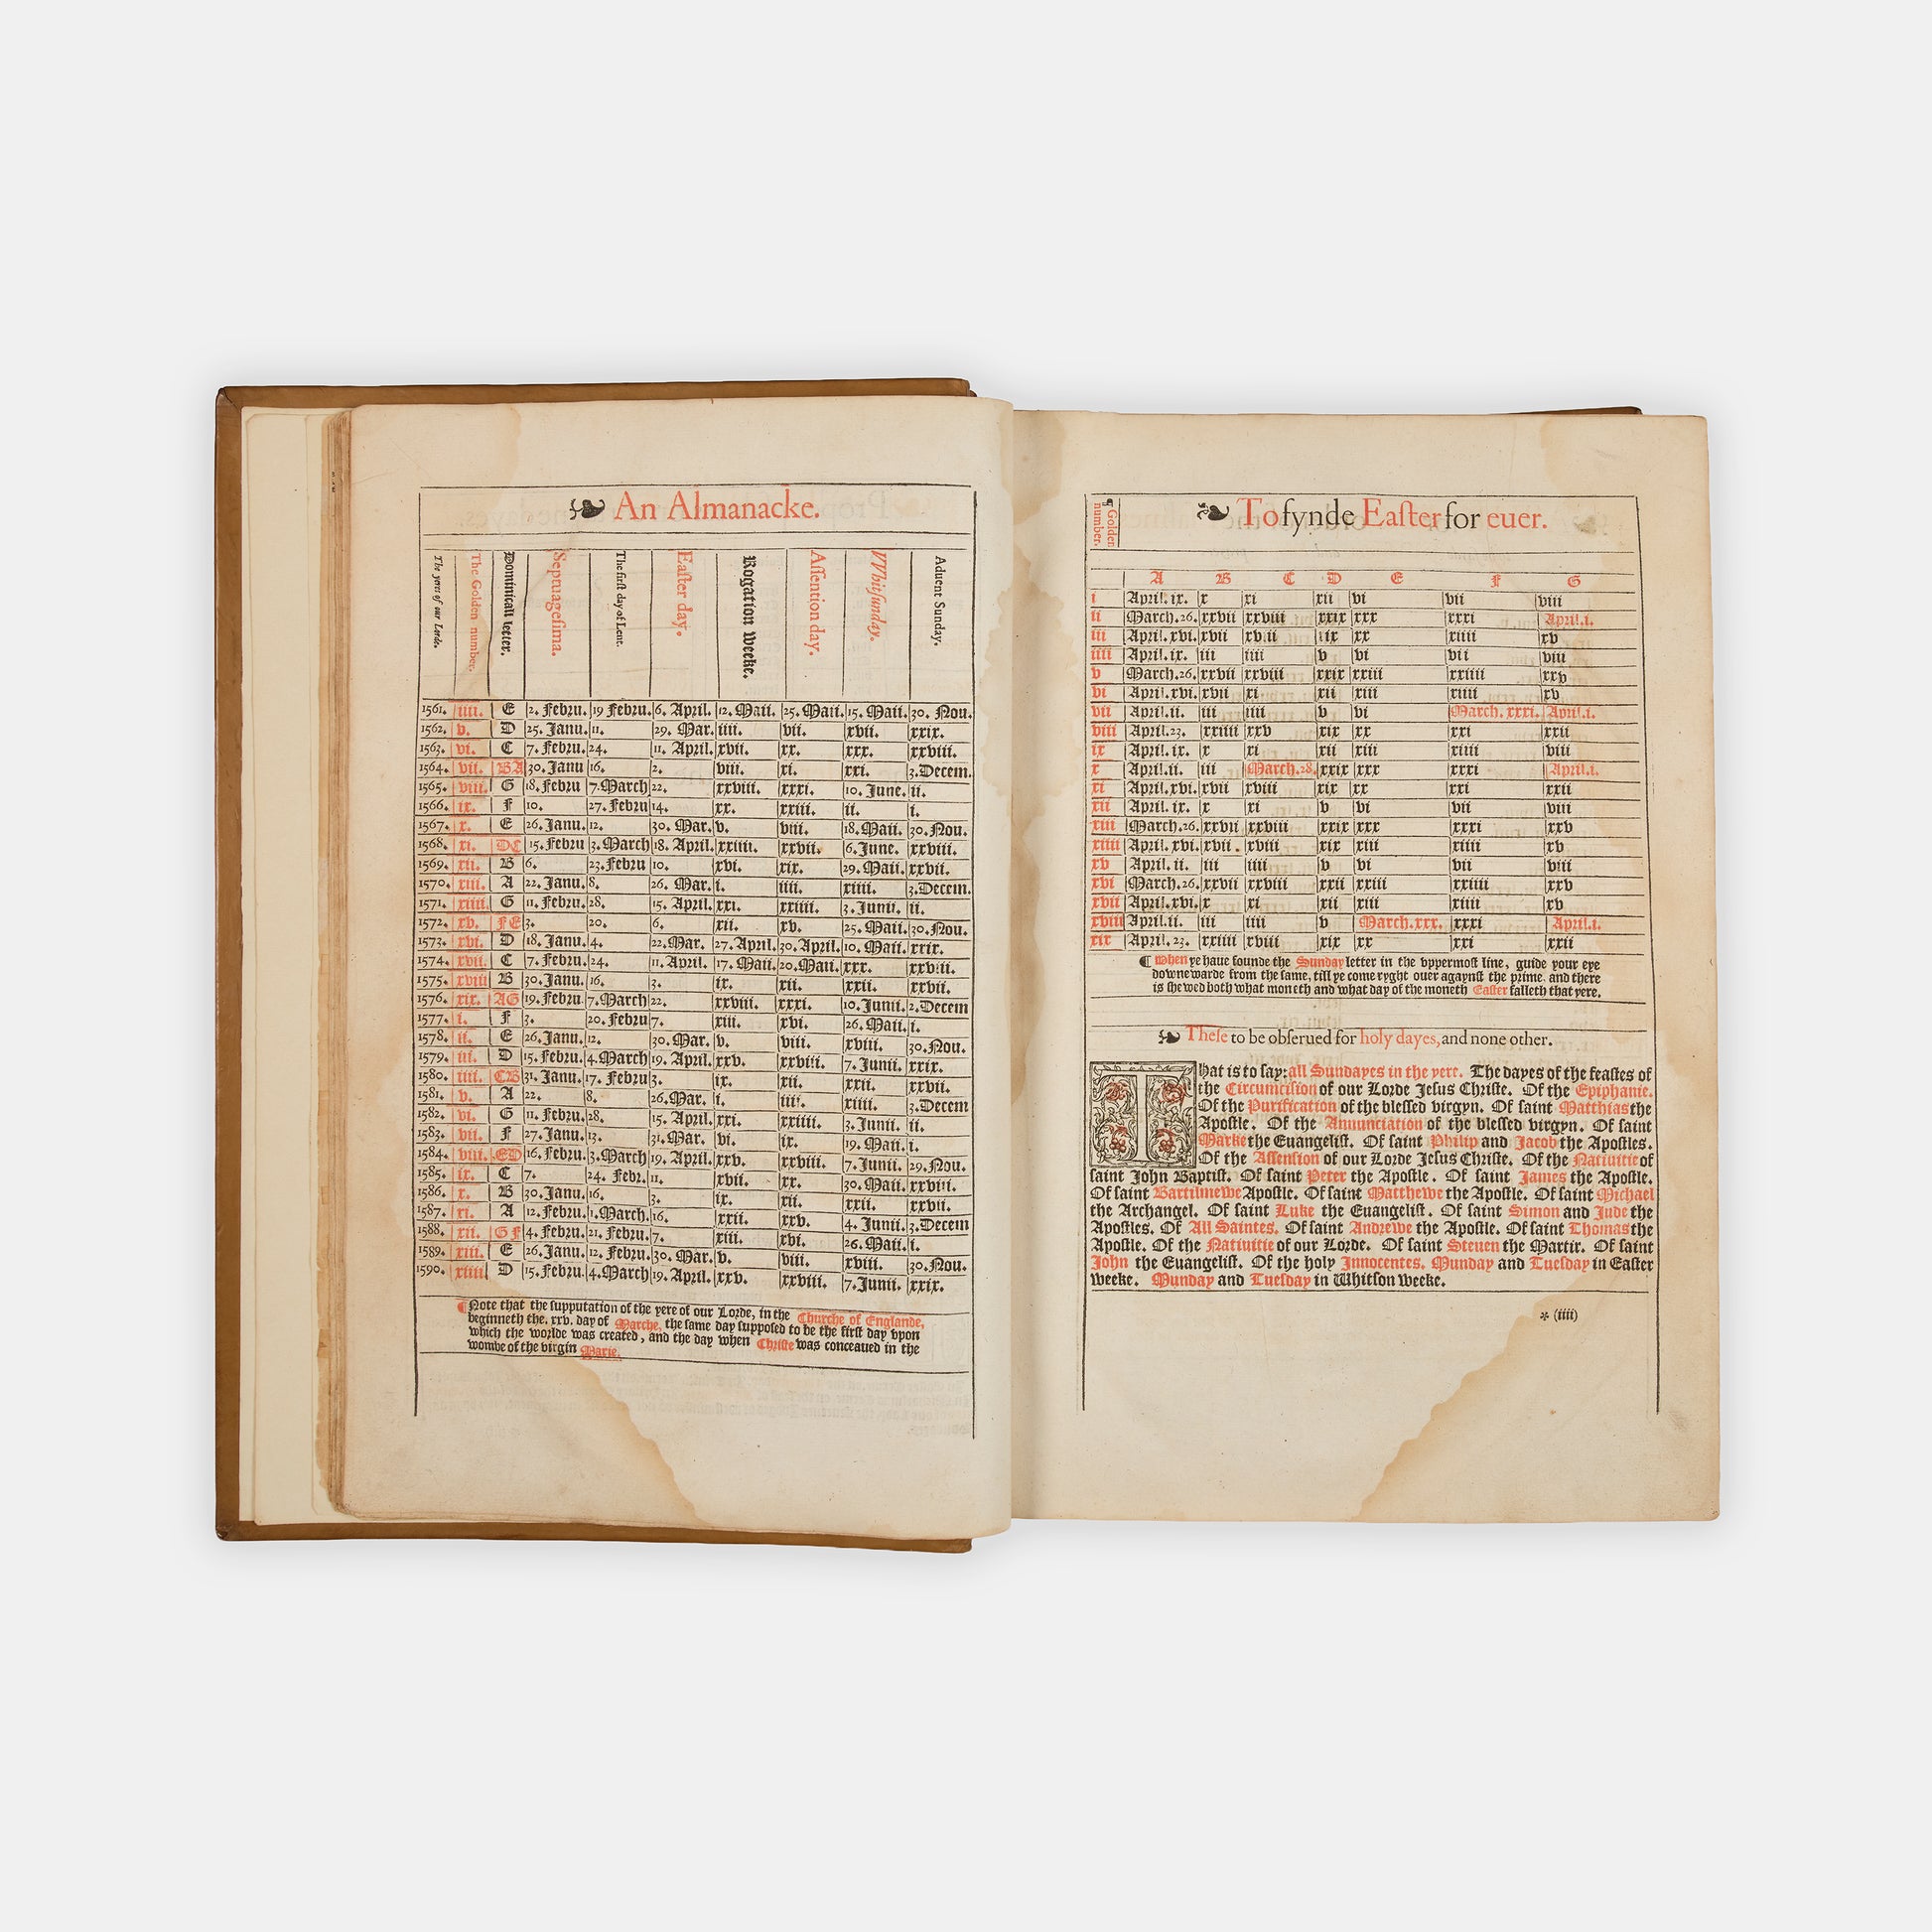 An Almanacke.
The yeres of our Lorde. The Golden number. Dominicall letter. Septuagesima. The first day of Lent. Easter day. Rogation weeke. Assention day. VVhitsunday. Aduent Sunday.
1561. iiii. E 2. Febru. 19 Febru. 6. April. 12. Maii. 25. Maii. 15. Maii. 30. Nou.
1562. v. D 25. Janu. 11. 29. Mar. iiii. vii. xvii. xxix.
1563. vi. C 7. Febru. 24. 11. April. xvii. xx. xxx. xxviii.
1564. vii. BA 30. Janu 16. 2. viii. xi. xxi. 3. Decem.
1565. viii. G 18. Febru 7. March 22. xxviii. xxxi. 10. June. ii.
1566. ix. F 10. 27. Febru 14. xx. xxiii. ii. i.
1567. x. E 26. Janu. 12. 30. Mar. v. viii. 18. Maii. 30. Nou.
1568. xi. DC 15. Febru 3. March 18. April. xxiiii. xxvii. 6. June. xxviii.
1569. xii. B 6. 23. Febru 10. xvi. xix. 29. Maii. xxvii.
1570. xiii. A 22. Janu. 8. 26. Mar. i. iiii. xiiii. 3. Decem.
1571. xiiii. G 11. Febru. 28. 15. April. xxi. xxiiii. 3. Junii. ii.
1572. xv. FE 3. 20. 6. xii. xv. 25. Maii. 30. Nou.
1573. xvi. D 18. Janu. 4. 22. Mar. 27. April. 30. April. 10. Maii. xxix.
1574. xvii. C 7. Febru. 24. 11. April. 17. Maii. 20. Maii. xxx. xxviii.
1575. xviii B 30. Janu. 16. 3. ix. xii. xxii. xxvii.
1576. xix. AG 19. Febru. 7. March 22. xxviii. xxxi. 10. Junii. 2. Decem
1577. i. F 3. 20. Febru 7. xiii. xvi. 26. Maii. i.
1578. ii. E 26. Janu. 12. 30. Mar. v. viii. xviii. 30. Nou.
1579. iii. D 15. Febru. 4. March 19. April. xxv. xxviii. 7. Junii. xxix.
1580. iiii. CB 31. Janu. 17. Febru 3. ix. xii. xxii. xxvii.
1581. v. A 22. 8. 26. Mar. i. iiii. xiiii. 3. Decem
1582. vi. G 11. Febru. 28. 15. April. xxi. xxiiii. 3. Junii. ii.
1583. vii. F 27. Janu. 13. 31. Mar. vi. ix. 19. Maii. i.
1584. viii. ED 16. Febru. 3. March 19. April. xxv. xxviii. 7. Junii. 29. Nou.
1585. ix. C 7. 24. Febr. 11. xvii. xx. 30. Maii. xxviii.
1586. x. B 30. Janu. 16. 3. ix. xii. xxii. xxvii.
1587. xi. A 12. Febru. 1. March. 16. xxii. xxv. 4. Junii. 3. Decem
1588. xii. GF 4. Febru. 21. Febru. 7. xiii. xvi. 26. Maii. i.
1589. xiii. E 26. Janu. 12. Febru. 30. Mar. v. viii. xviii. 30. Nou.
1590. xiiii D 15. Febru. 4. March 19. April. xxv. xxviii. 7. Junii. xxix.
¶ Note that the supputation of the yere of our Lorde, in the Churche of Englande,
beginneth the. xxv. day of Marche, the same day supposed to be the first day vpon
which the worlde was created, and the day when Christe was conceaued in the
wombe of the virgin Marie.
¶ Golden number.
To fynde Easter for euer.
A B C D E F G
i April. ix. x xi xii vi vii viii
ii March. 26. xxvii xxviii xxix xxx xxxi April. i.
iii April. xvi. xvii xviii xix xx xiiii xv
iiii April. ix. iii iiii v vi vii viii
v March. 26. xxvii xxviii xxix xxiii xxiiii xxv
vi April. xvi. xvii xi xii xiii xiiii xv
vii April. ii. iii iiii v vi March. xxxi. April. i.
viii April. 23. xxiiii xxv xix xx xxi xxii
ix April. ix. x xi xii xiii xiiii viii
x April. ii. iii March. 28. xxix xxx xxxi April. i.
xi April. xvi. xvii xviii xix xx xxi xxii
xii April. ix. x xi v vi vii viii
xiii March. 26. xxvii xxviii xxix xxx xxxi xxv
xiiii April. xvi. xvii. xviii xix xiii xiiii xv
xv April. ii. iii iiii v vi vii viii
xvi March. 26. xxvii xxviii xxii xxiii xxiiii xxv
xvii April. xvi. x xi xii xiii xiiii xv
xviii April. ii. iii iiii v March. xxx. xxxi April. i.
xix April. 23. xxiiii xviii xix xx xxi xxii
¶ When ye haue founde the Sunday letter in the vppermost line, guide your eye
downewarde from the same, till ye come ryght ouer agaynst the prime. and there
is shewed both what moneth and what day of the moneth Easter falleth that yere.
These to be obserued for holy dayes, and none other.
That is to say: all Sundayes in the yere. The dayes of the feastes of
the Circumcision of our Lorde Jesus Christe. Of the Epiphanie.
Of the Purification of the blessed virgyn. Of saint Matthias the
Apostle. Of the Annunciation of the blessed virgyn. Of saint
Marke the Euangelist. Of saint Philip and Jacob the Apostles.
Of the Assension of our Lorde Jesus Christe. Of the Natiuitie of
saint John Baptist. Of saint Peter the Apostle. Of saint James the Apostle.
Of saint Bartilmewe Apostle. Of saint Matthewe the Apostle. Of saint Michael
the Archangel. Of saint Luke the Euangelist. Of saint Simon and Jude the
Apostles. Of All Saintes. Of saint Andrewe the Apostle. Of saint Thomas the
Apostle. Of the Natiuitie of our Lorde. Of saint Steuen the Martir. Of saint
John the Euangelist. Of the holy Innocentes. Munday and Tuesday in Easter
weeke. Munday and Tuesday in Whitson weeke.
* (iiii)